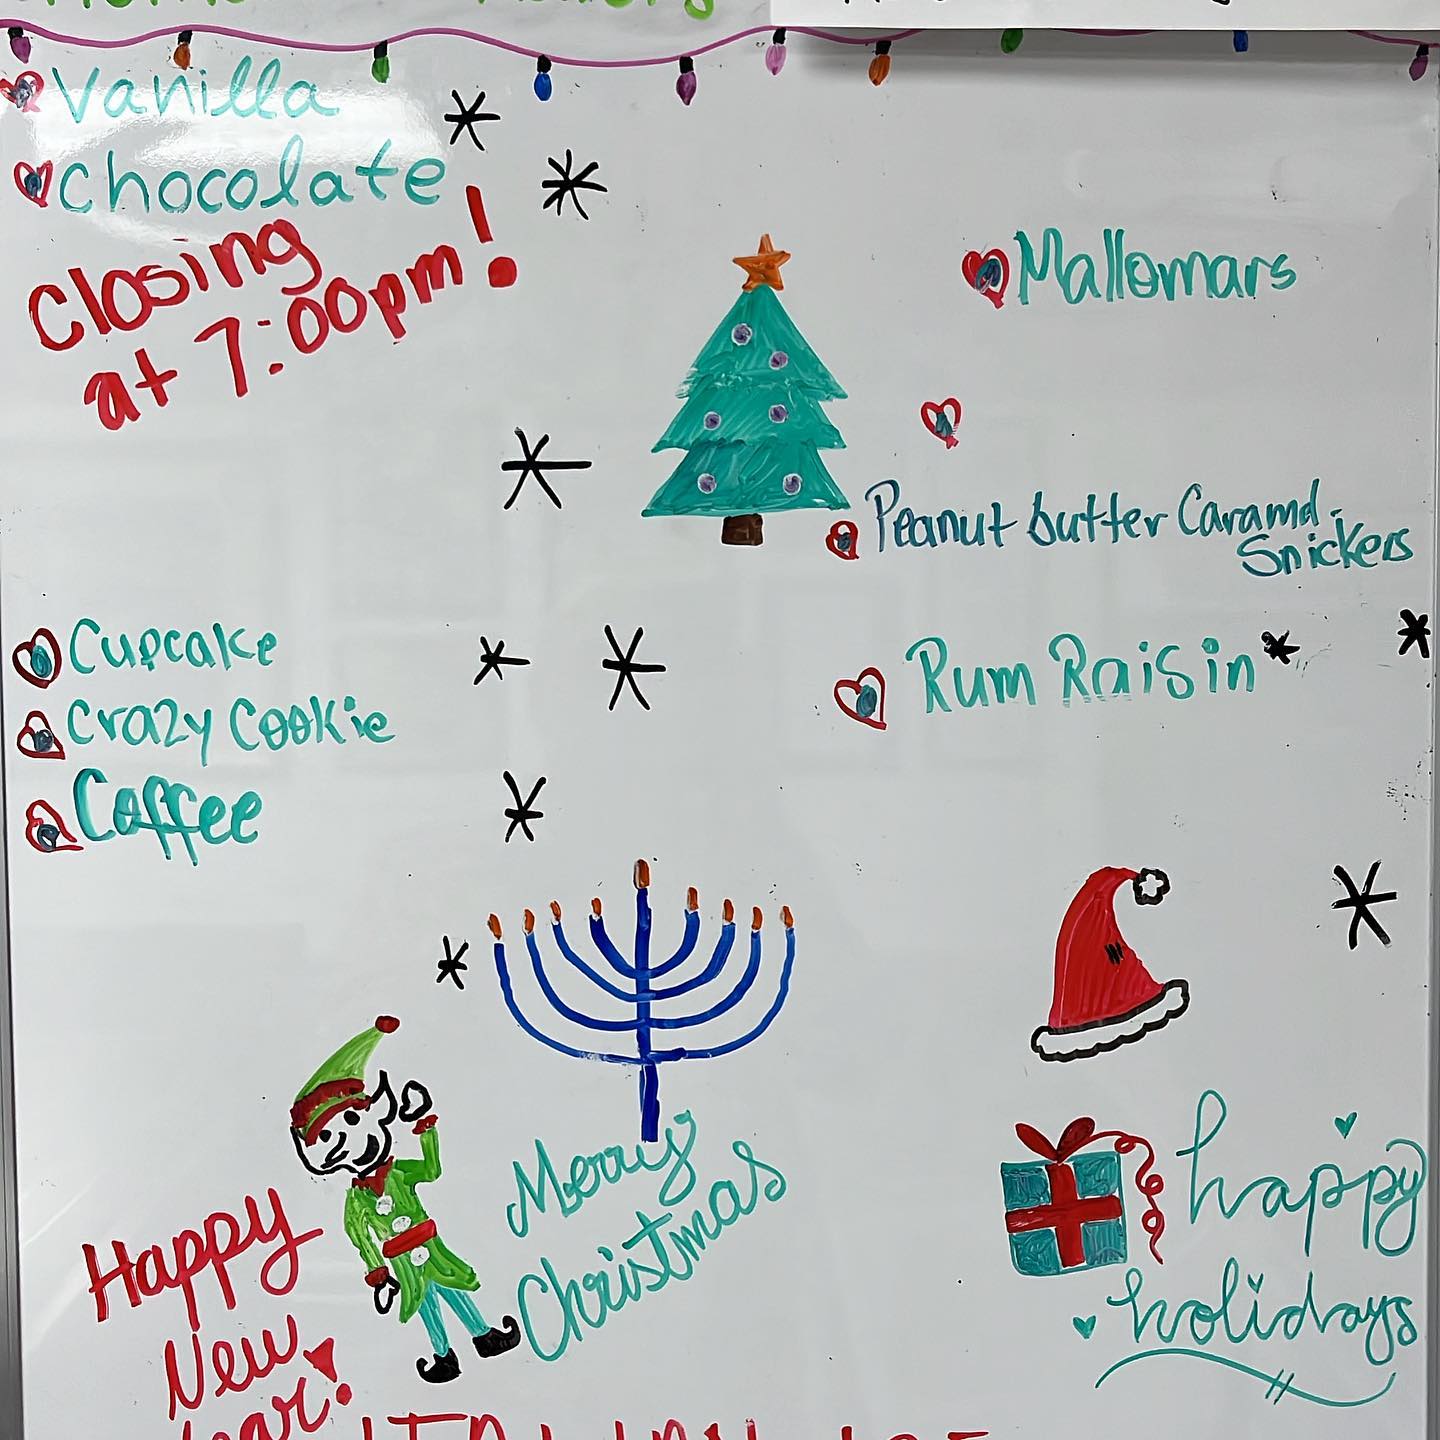 Vanilla
Chocolate
Closing
at 7:00pm!
Mallomars
Peanut butter Caramel.
Snickers
Cupcake
Rum Raisin
Crazy Cookie
Coffee
Merry
Christmas
happy
holidays
Happy
New
Year!